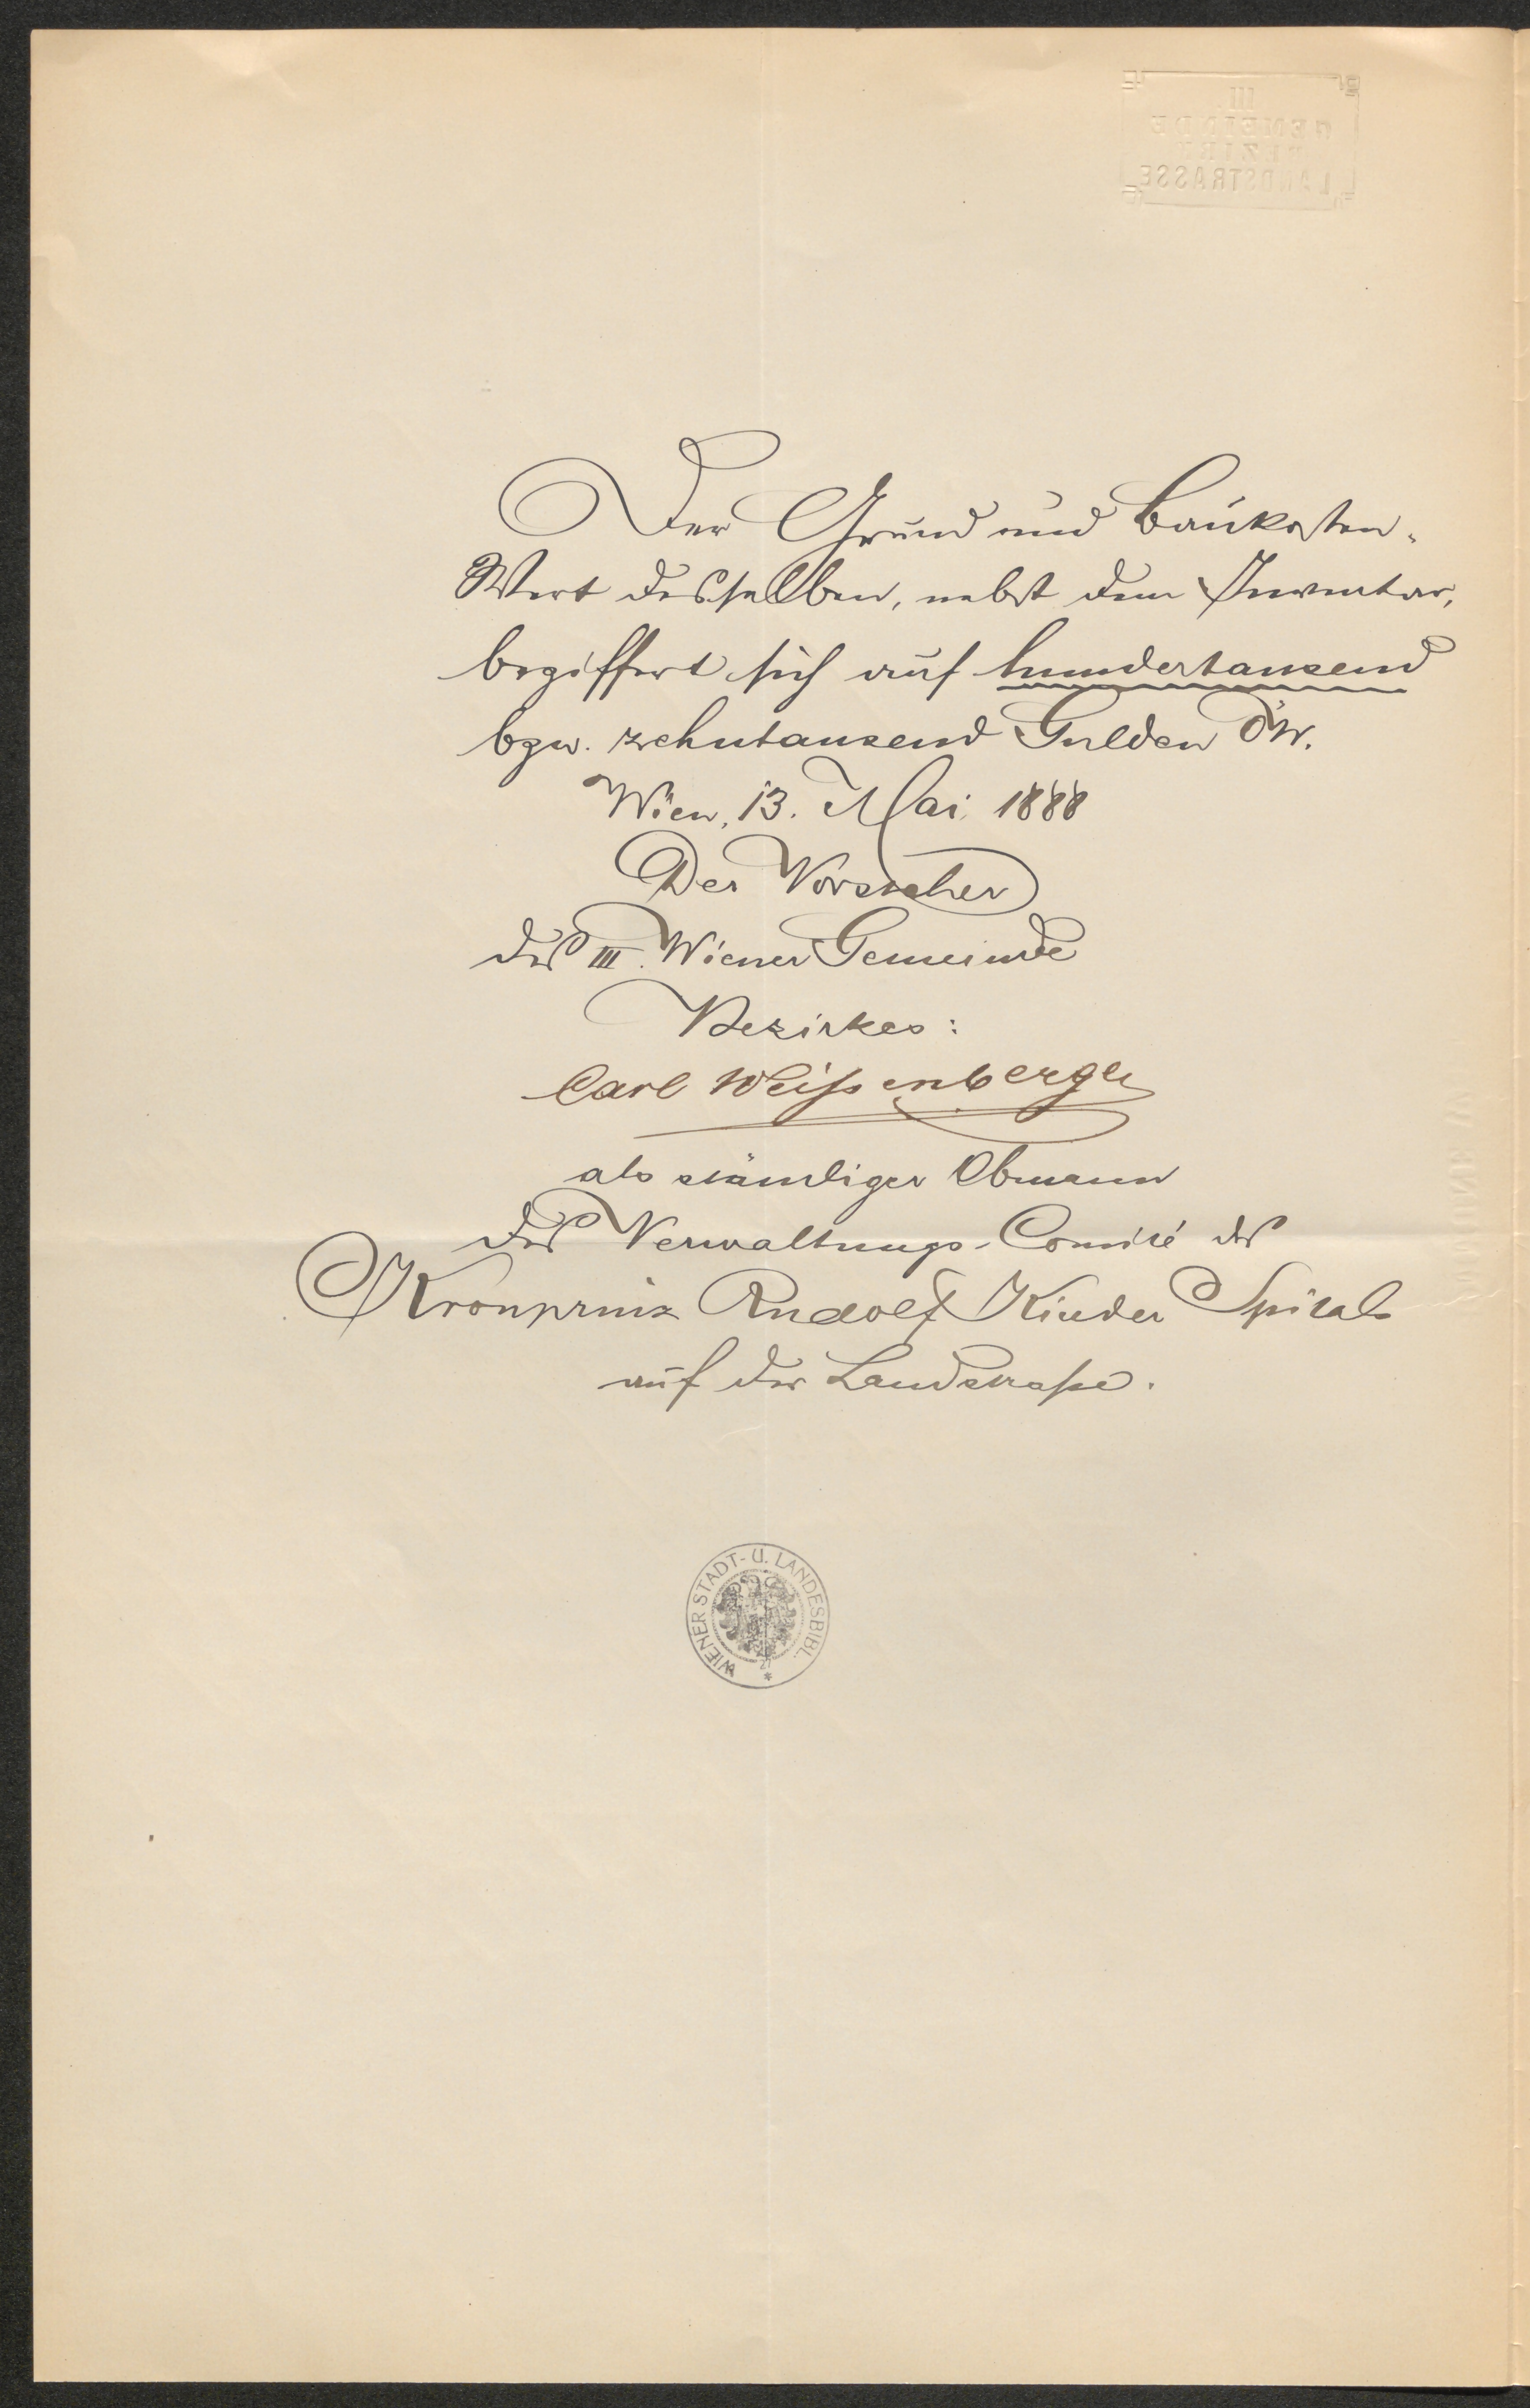 III
GEMEINDE
BEZIRK
LANDSTRASSE
Der Grund und Baukosten-
Wert desselben, nebst dem Inventar,
beziffert sich auf hundertausend
bzw. zehntausend Gulden ÖW.
Wien, 13. Mai 1888
Der Vorsteher
des III. Wiener Gemeinde
Bezirkes:
Carl Weißenberger
als ständiger Obmann
des Verwaltungs-Comité des
Kronprinz Rudolf Kinder Spitals
auf der Landstraße.
WIENER STADT- U. LANDESBIBL.